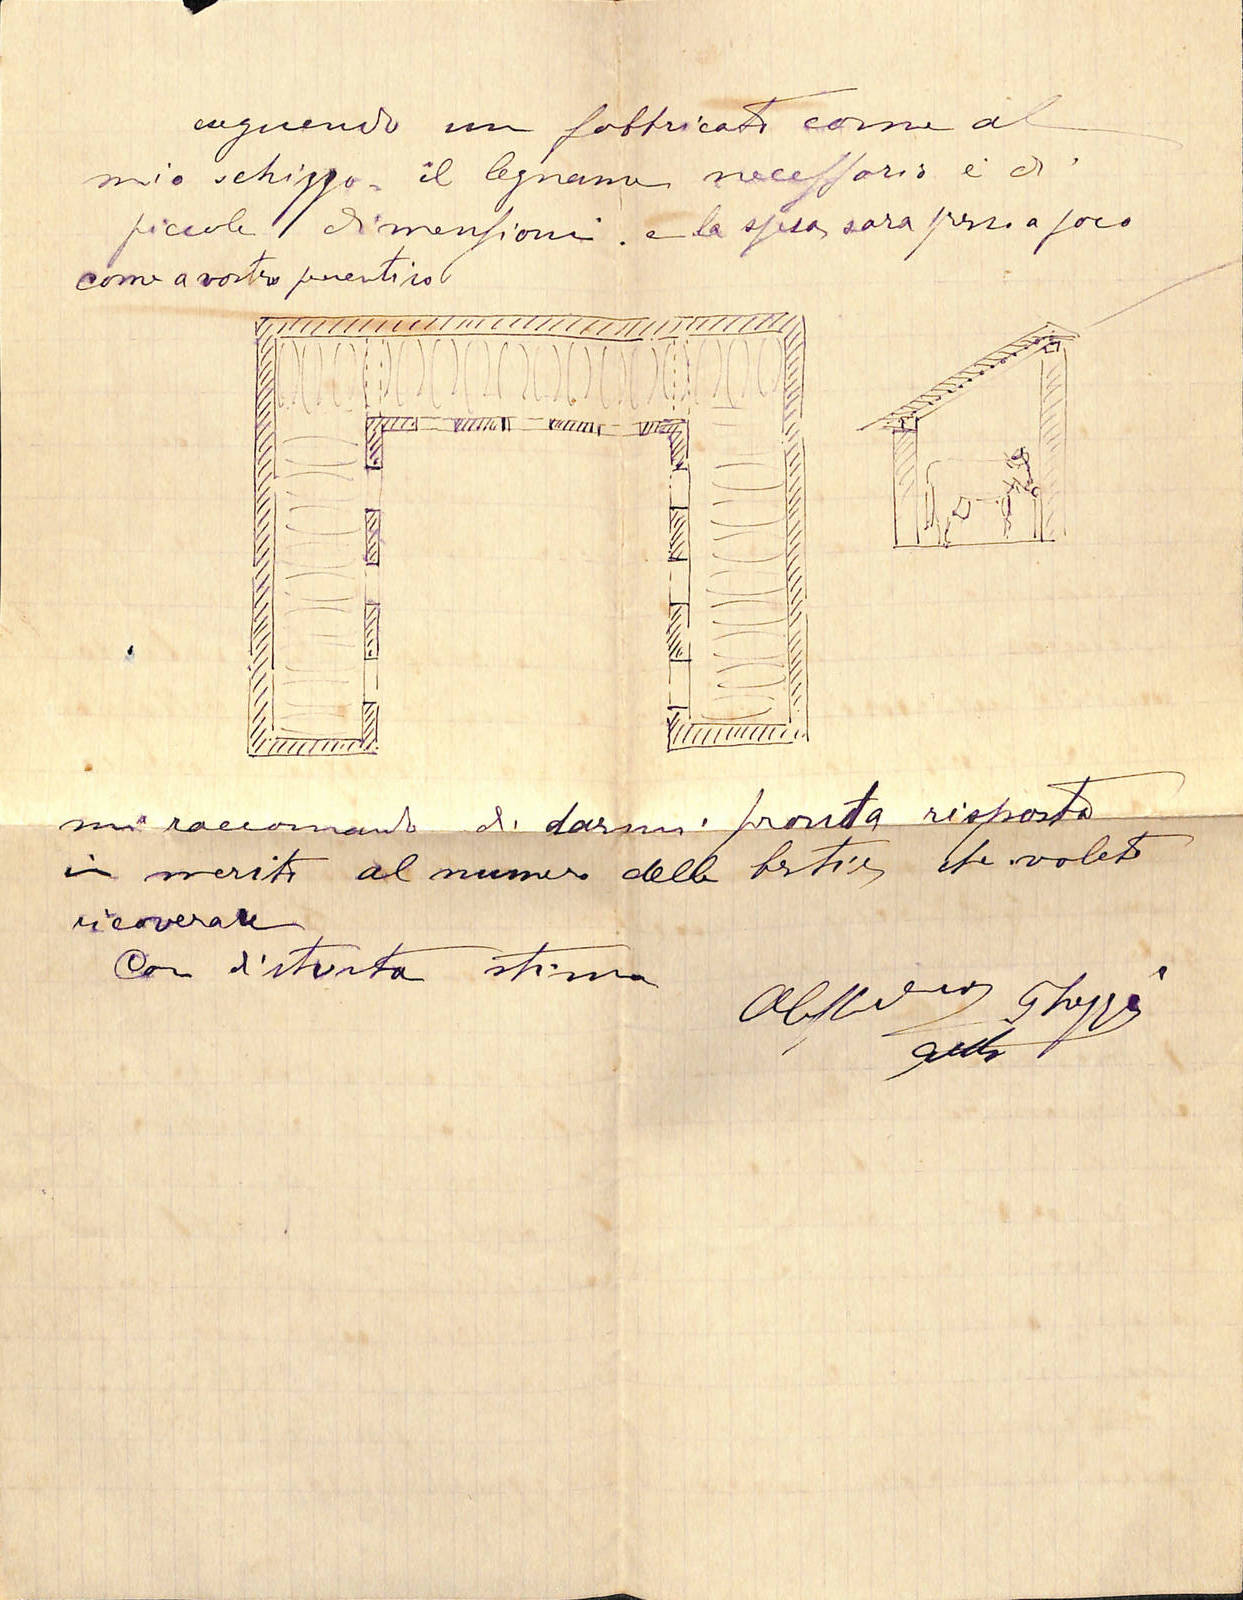 eseguendo un fabbricato come al
mio schizzo il legname necessario è di
piccole dimensioni . e la spesa sara presso a poco
come a vostro preventivo
mi raccomando di darmi pronta risposta
in merito al numero delle bestie che volete
ricoverare
Con distinta stima
Ghezzi